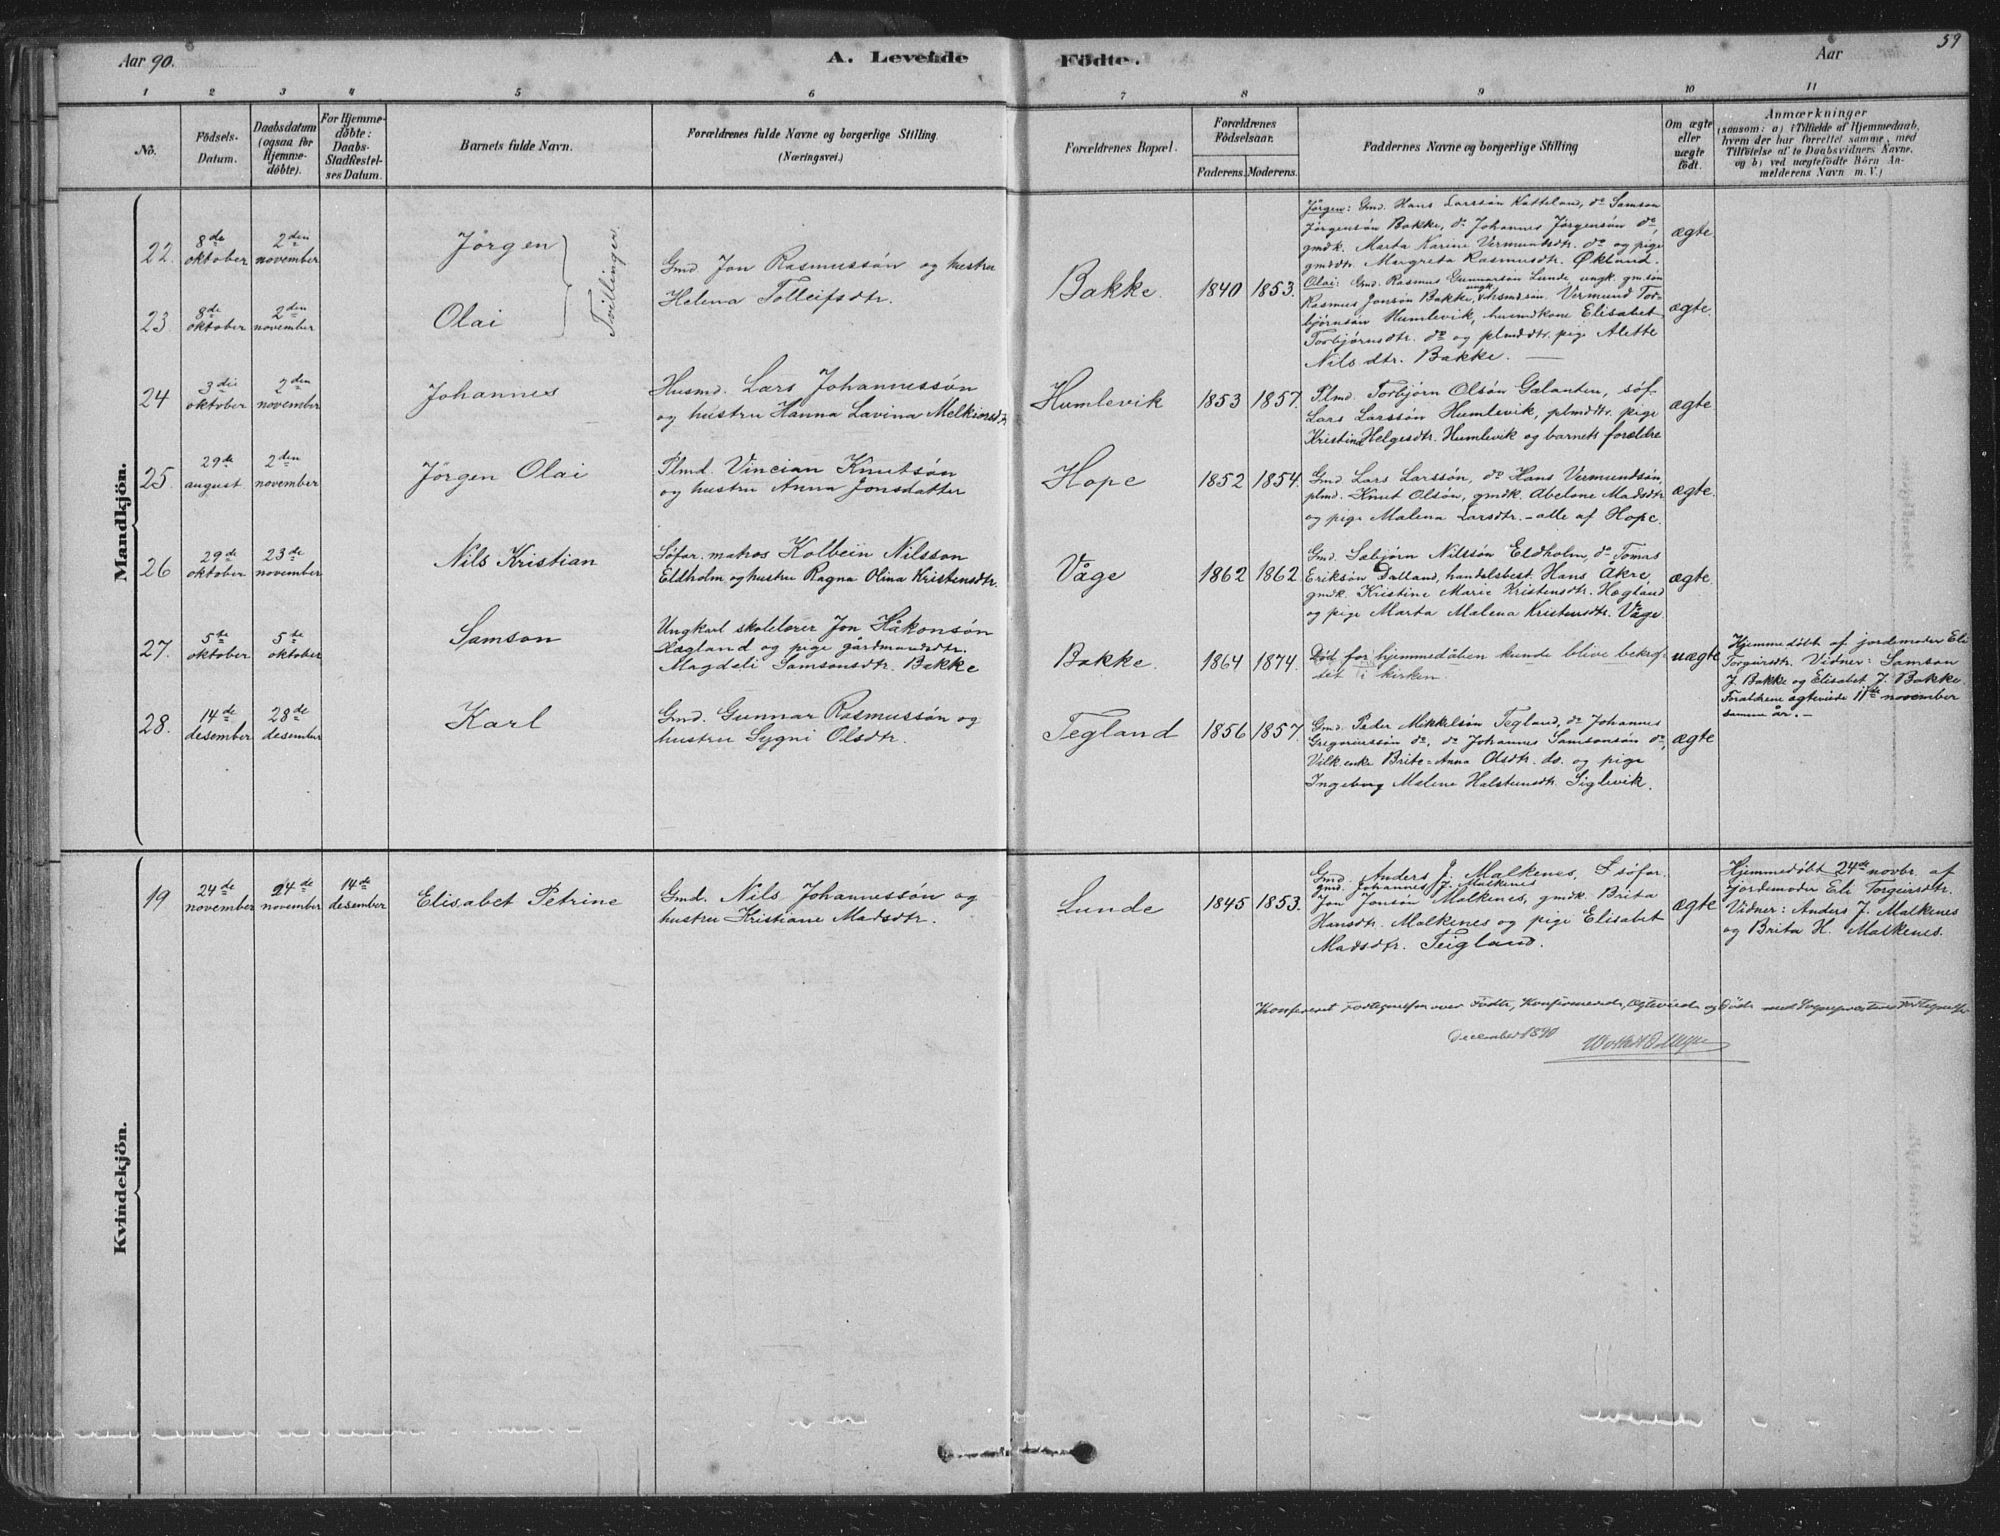 Aar 90.
A. Levende
Födte.
Aar
59
1 2 3 4 5 6 7 8 9 10 11
No.
Födsels-
Datum.
Daabsdatum
(ogsaa for
Hjemme-
døbte).
For Hjemme-
døbte:
Daabs-
Stadfæstel-
ses Datum.
Barnets fulde Navn.
Forældrenes fulde Navne og borgerlige Stilling.
(Næringsvei.)
Forældrenes Bopæl.
Forældrenes
Födselsaar.
Faderens. Moderens.
Faddernes Navne og borgerlige Stilling
Om ægte
eller
uægte
födt.
Anmærkninger
(saasom: a) i Tilfælde af Hjemmedaab,
hvem der har forrettet samme, med
Tilföielse af to Daabsvidners Navne,
og b) ved uægtefödte Börn An-
melderens Navn m. V.)
Mandkjön.
22.
8de
oktober
2den
november
Jörgen
Tvillinger.
23.
8de
oktober
2den
november
Olai
Gmd. Jon Rasmussön og hustru
Helena Tolleifsdtr.
Bakke.
1840 1853.
Jörgen: Gmd. Hans Larssön Katteland, do Samson
Jörgensön Bakke, do Johannes Jörgensön do,
gmdk. Marta Karine Vermundsdtr. do og pige
gmddtr. Margreta Rasmusdtr. Økland.
Olai: Gmd. Rasmus Gunnarsön Lunde ungk. gm.sön
Rasmus Jonsön Bakke, ungk. husmdsön Vermund Tor-
björnsön Humlevik, husmdkone Elisabet
Torbjörnsdtr. do og plmddtr. pige Alette
Nilsdtr. Bakke.
ægte
ægte.
24
3die
oktober
2den
november
Johannes
Husmd. Lars Johannessön
og hustru Hanna Lavina Melkiorsdtr
Humlevik
1853 1857.
Plmd. Torbjörn Olsön Galanten, söf.
Lars Larssön Humlevik, plmddtr. pige
Kristina Helgesdtr. Humlevik og barnets forældre
ægte
25.
29de
august
2den
november
Jörgen Olai
Plmd. Vincian Knutsön
og hustru Anna Jonsdatter
Hope
1852 1854.
Gmd. Lars Larssön, do Hans Vermundsön,
plmd. Knut Olsön, gmdk. Abelone Madsdtr
og pige Malena Larsdtr. – alle af Hope.
ægte.
26
29de
oktober
23de
november
Nils Kristian
Söfar. matros Kolbein Nilsson
Eldholm og hustru Ragna Olina Kristensdtr.
Våge
1862 1862
Gmd. Sæbjörn Nilssön Eldholm, do Tomas
Eriksön Dalland, handelsbest. Hans Åkre,
gmdk. Kristine Marie Kristensdtr. Hægland
og pige Marta Malena Kristensdtr. Våge.
ægte.
27.
5te
oktober
5te
oktober
Samson
Ungkarl skolelærer Jon Håkonsön
Hægland og pige gårdmandsdtr.
Magdeli Samsonsdtr. Bakke
Bakke.
1864 1874.
Död for hjemmedåben kunde blive bekræf-
tet i kirken.
uægte
Hjemmedöbt af jordemoder Eli
Torgeirsdtr. Vidner: Samson
J. Bakke og Elisabet J. Bakke.
Forældrene ægteviede 11te november
samme år. –
28.
14de
desember
28de
desember
Karl
Gmd. Gunnar Rasmussön og
hustru Sygni Olsdtr.
Tegland
1856 1857.
Gmd. Peder Mikkelsön Tegland, do Johannes
Gregoriussön do, do Johannes Samsonsön do,
Vilk.enke Brite-Anna Olsdtr. do. og pige
Ingeborg Malene Halstensdtr. Siglevik.
ægte
Kvindekjön.
19
24de
november
24de
november
14de
desember
Elisabet Petrine
Gmd. Nils Johannessön og
hustru Kristiane Madsdtr.
Lunde
1845 1853.
Gmd. Anders J. Malkenes, söfar.
gmd. Johannes J. Malkenes
Jon Jonsön Malkenes, gmdk. Brita
Hansdtr. Malkenes og pige Elisabet
Madsdtr. Teigland.
ægte
Hjemmedöbt 24de novbr. af
jordemoder Eli Torgeirsdtr.
Vidner: Anders J. Malkenes
og Brita H. Malkenes.
Konfereret Fortegnelsen over Födte, Konfirmerede, Ægteviede og Döde med Sognepræstens Fortegnelse
December 1890